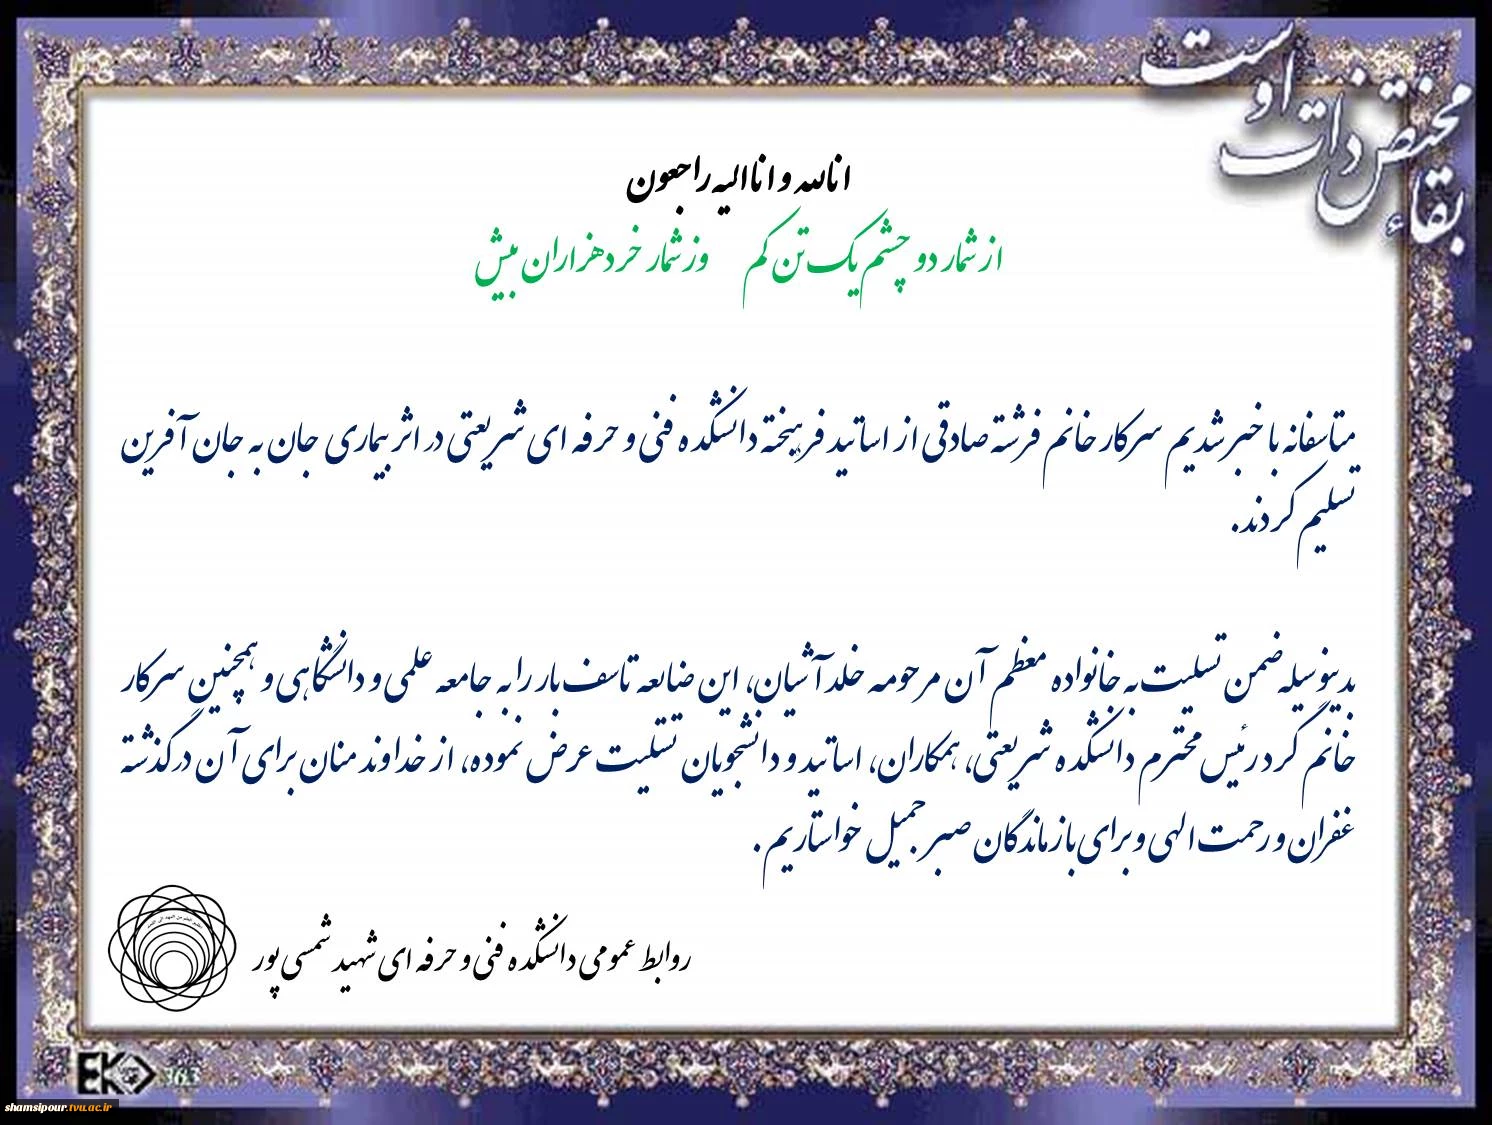 بقاء مختص ذات اوست
انالله و اناالیه راجعون
از شمار دو چشم یک تن کم وز شمار خرد هزاران بیش
متاسفانه با خبر شدیم سرکار خانم فرشته صادقی از اساتید فرهیخته دانشکده فنی و حرفه ای شریعتی در اثر بیماری جان به جان آفرین
تسلیم کردند.
بدینوسیله ضمن تسلیت به خانواده معظم آن مرحومه خلد آشیان، این ضایعه تاسف بار را به جامعه علمی و دانشگاهی و همچنین سرکار
خانم گرد رئیس محترم دانشکده شریعتی، همکاران، اساتید و دانشجویان تسلیت عرض نموده، از خداوند منان برای آن درگذشته
غفران و رحمت الهی و برای بازماندگان صبر جمیل خواستاریم.
روابط عمومی دانشکده فنی و حرفه ای شهید شمسی پور
EK 363
shamsipour.tvu.ac.ir